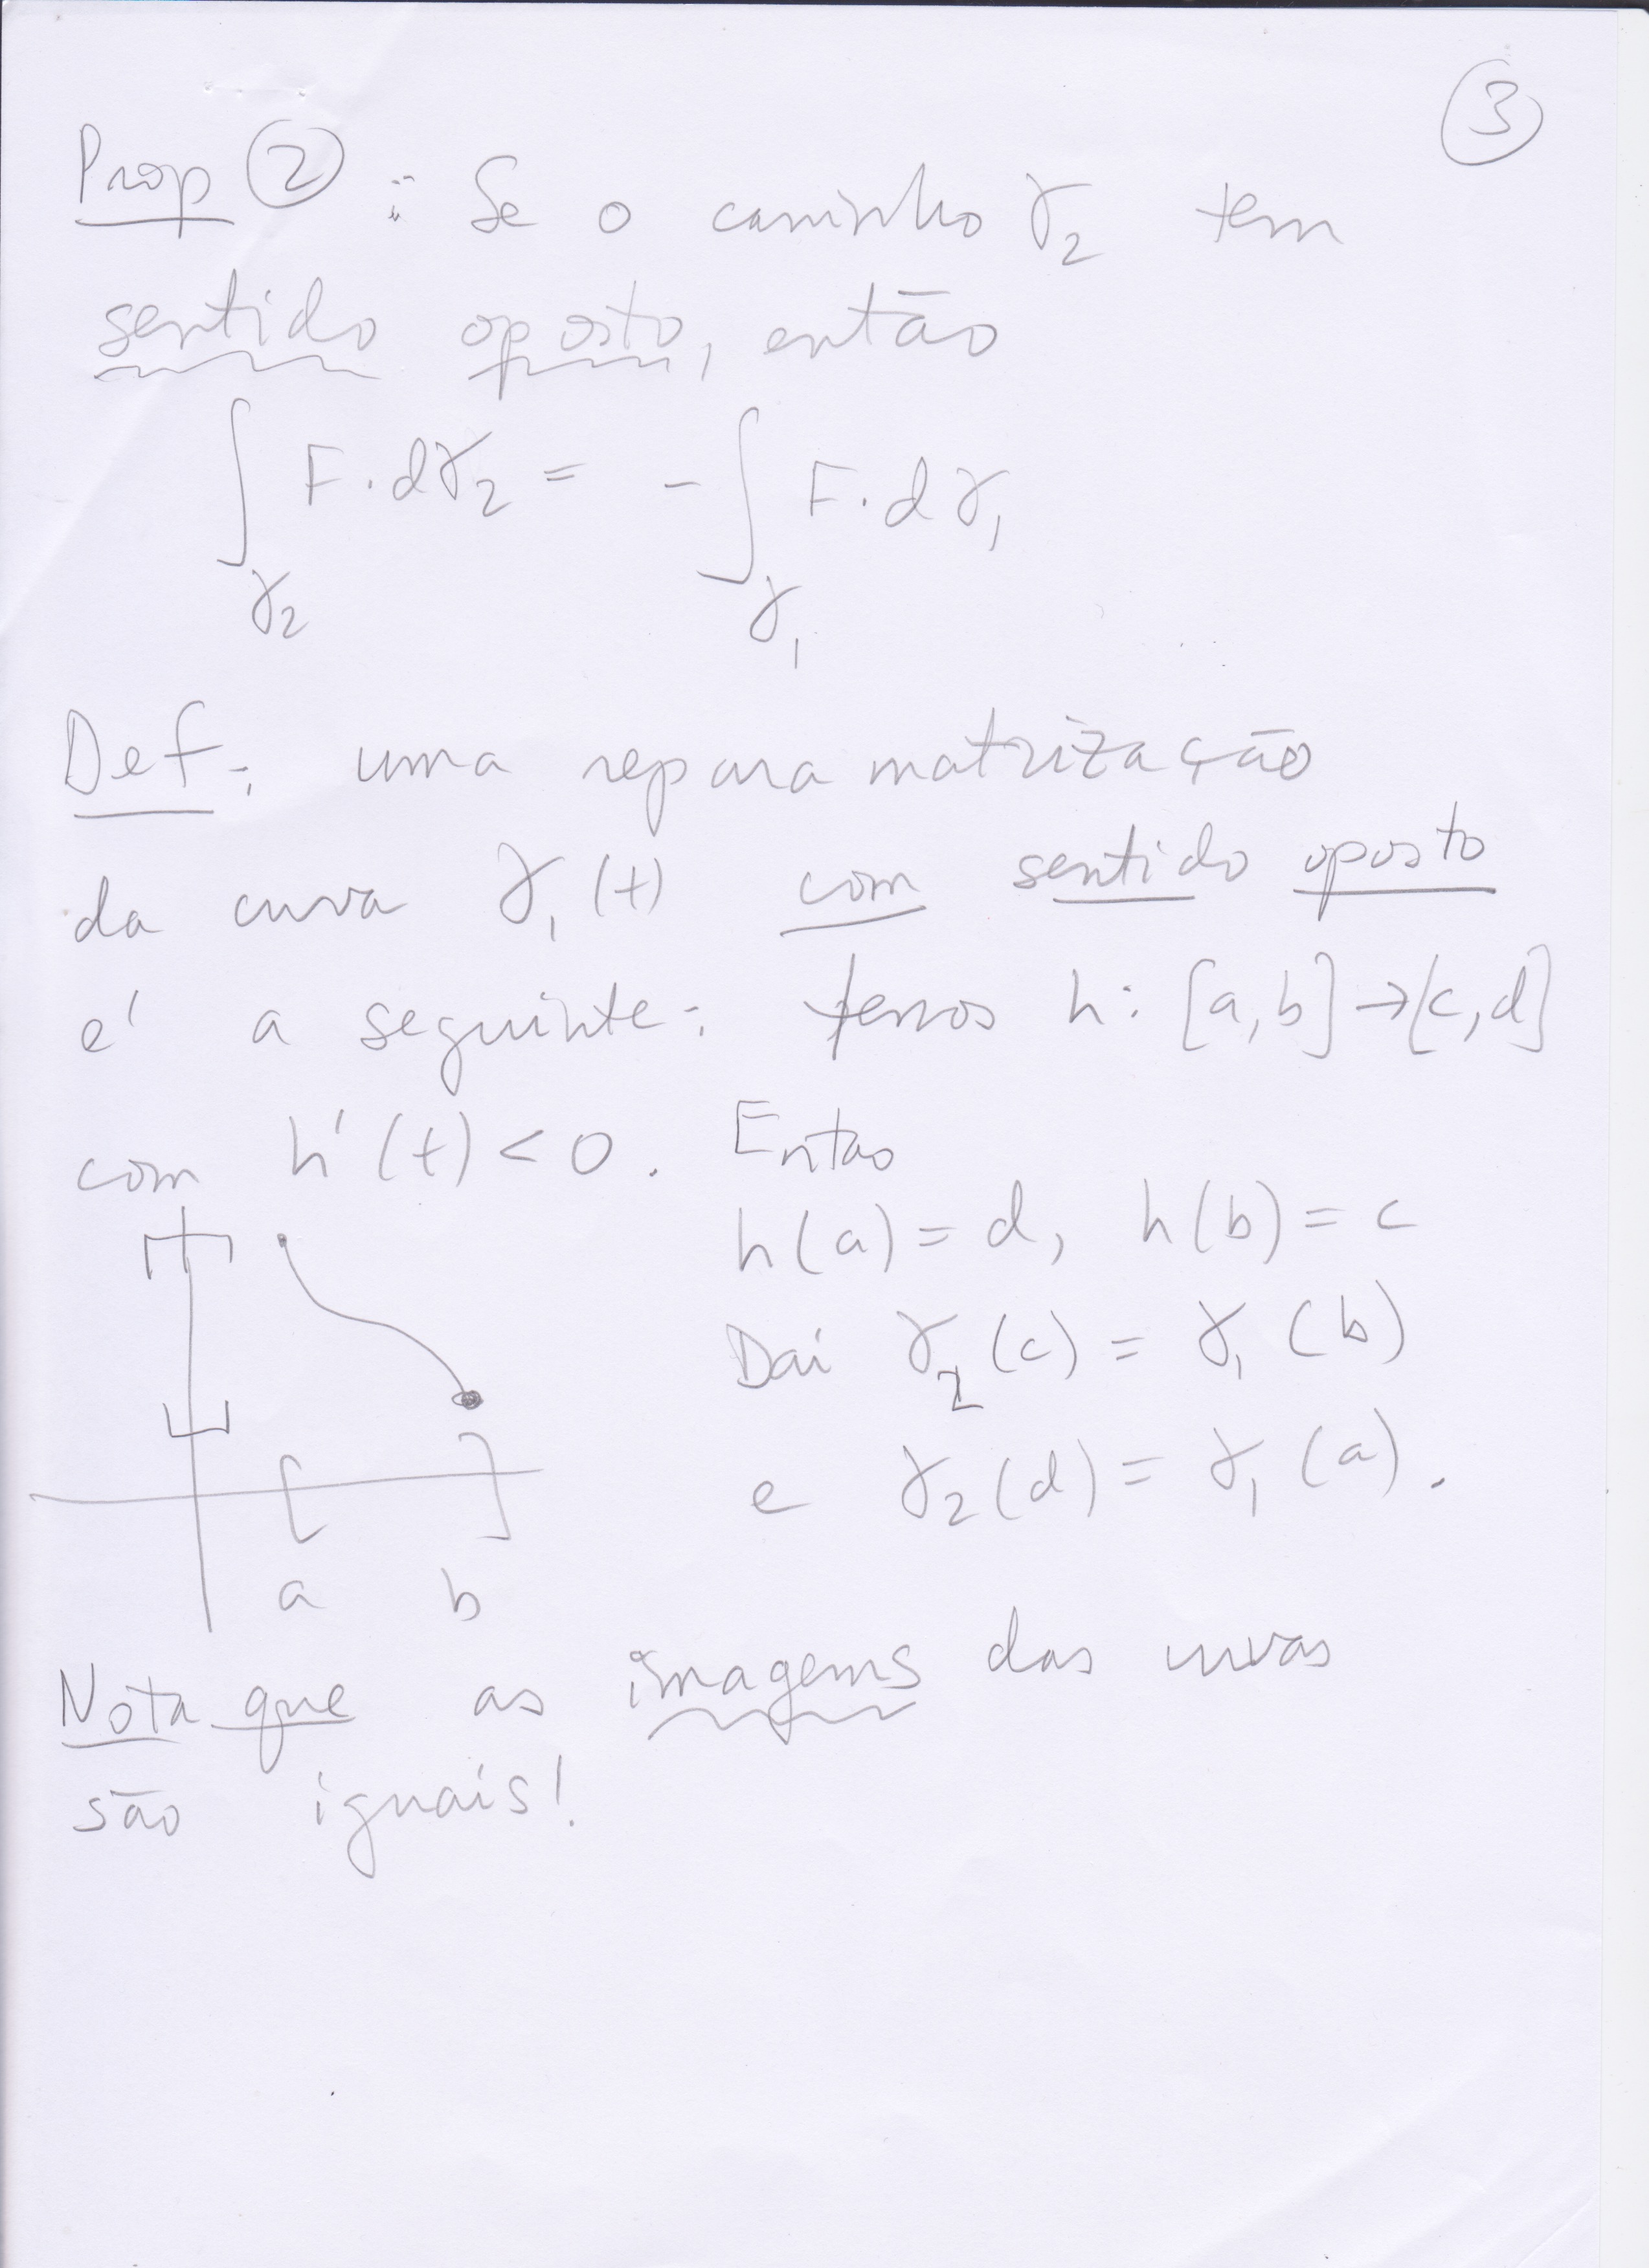 3
Prop 2 : Se o caminho γ₂ tem
sentido oposto, então
∫_γ₂ F·dγ₂ = -∫_γ₁ F·dγ₁
Def: uma reparamatrização
da curva γ₁(t) com sentido oposto
e' a seguinte: temos h: [a,b]→[c,d]
com h'(t)<0. Entao
h(a)=d, h(b)=c
Dai γ₂(c)=γ₁(b)
e γ₂(d)=γ₁(a).
a b
Nota que as imagems das curvas
são iguais!